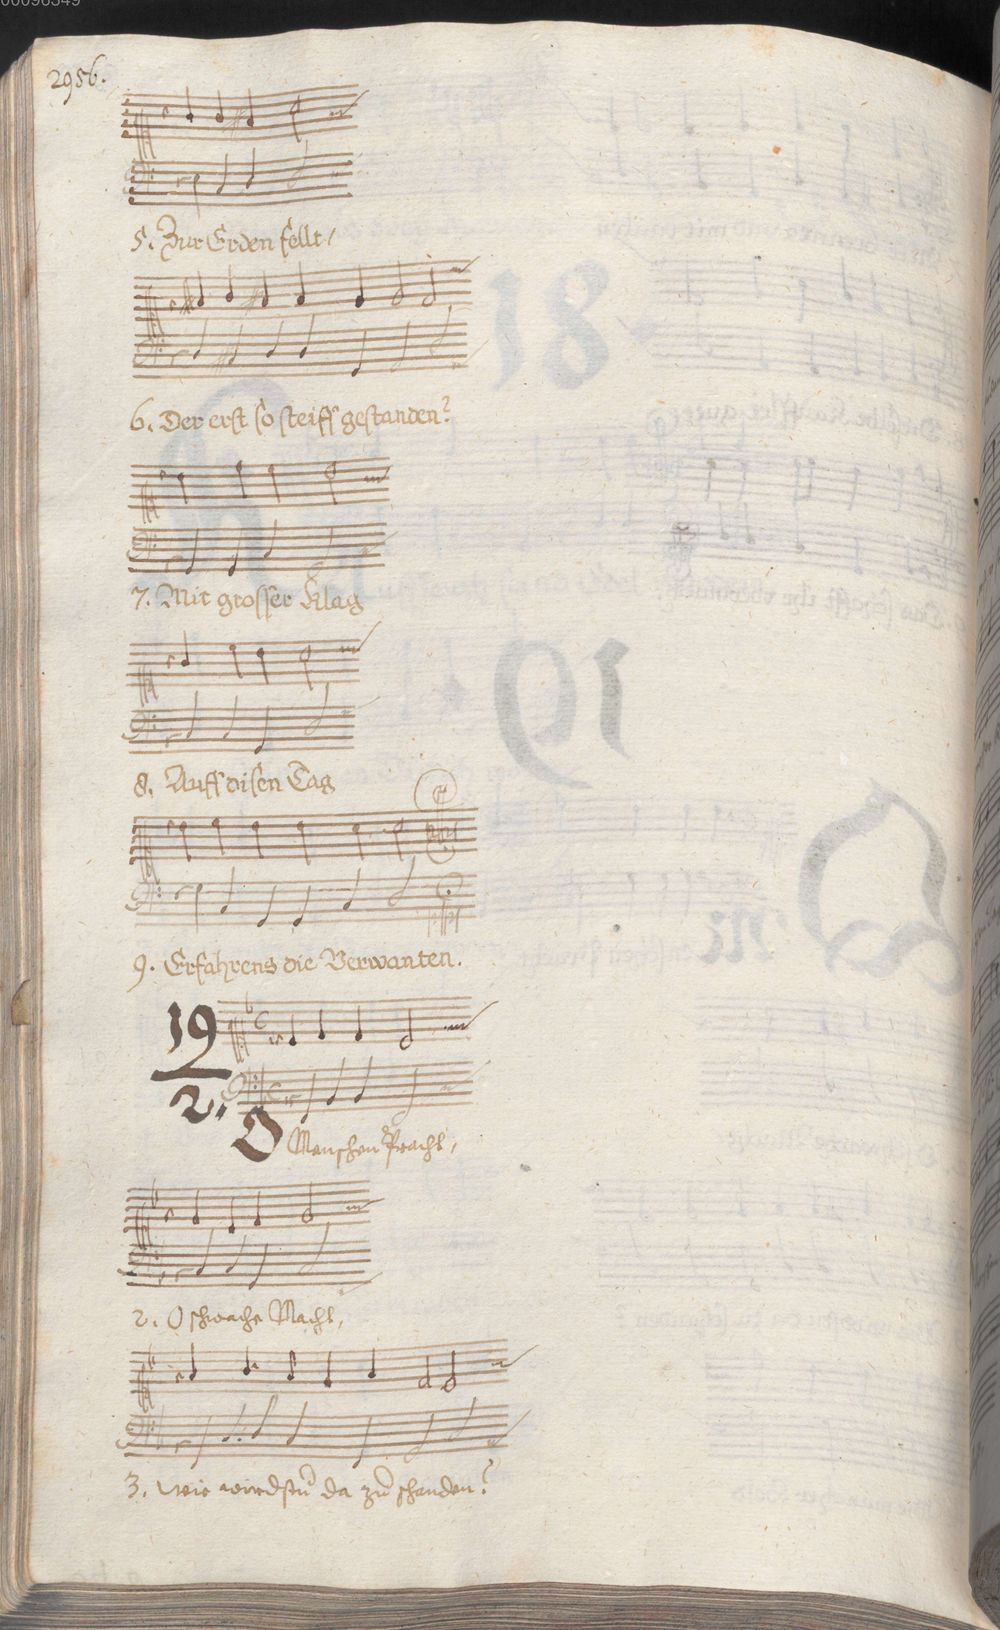 00096349
2956.
5. Zur Erden fellt/
6. Der erst so steiff gestanden?
7. Mit grosser Klag
8. Auff disen Tag
9. Erfahrens die Verwanten.
19
2.
O Menschen Pracht,
2. O schwache Macht,
3. Wie wirdstu da zu schanden?